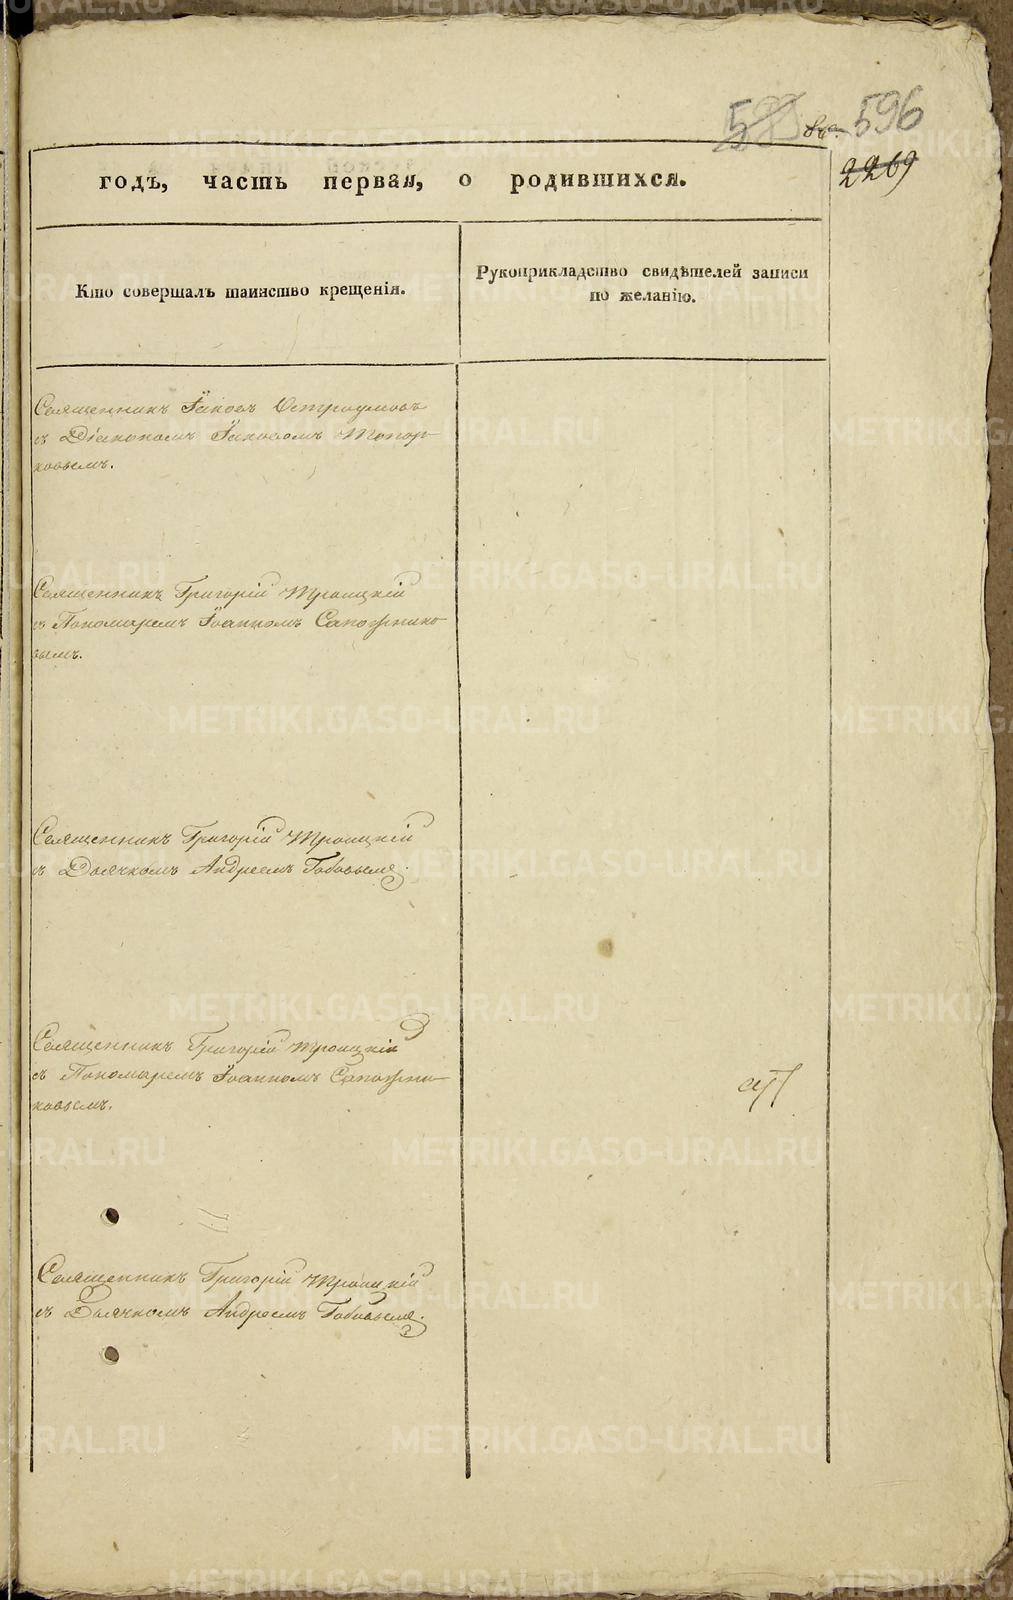 596
2269
годъ, часть первая, о родившихся.
Кто совершалъ таинство крещенія.
Рукоприкладство свидѣтелей записи
по желанію.
Священникъ Іаковъ Остроумовъ
съ Діакономъ Іаковомъ Топор-
ковымъ.
Священникъ Григорій Троицкій
съ Пономаремъ Іоанномъ Сапожнико-
вымъ.
Священникъ Григорій Троицкій
съ Дьячкомъ Андреемъ
Священникъ Григорій Троицкій
съ Пономаремъ Іоанномъ Сапожни-
ковымъ.
Священникъ Григорій Троицкій
съ Дьячкомъ Андреемъ
METRIKI.GASO-URAL.RU